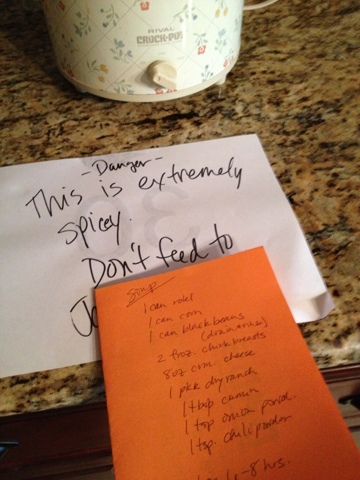 RIVAL
CROCK-POT
-Danger-
This is extremely
spicey.
Don't feed to
Soup
1 can rotel
1 can corn
1 can black beans
(drain & rinse)
2 froz. chick breasts
8oz crm. cheese
1 pkg dry ranch
1 tbsp cumin
1 tsp onion powd.
1 tsp. chili powder
6-8 hrs.